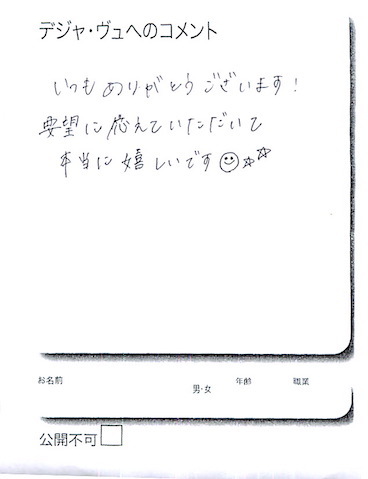 デジャ・ヴュへのコメント
いつもありがとうございます!
要望に応えていただいて
本当に嬉しいです☺☆☆
お名前 男・女 年齢 職業
公開不可□